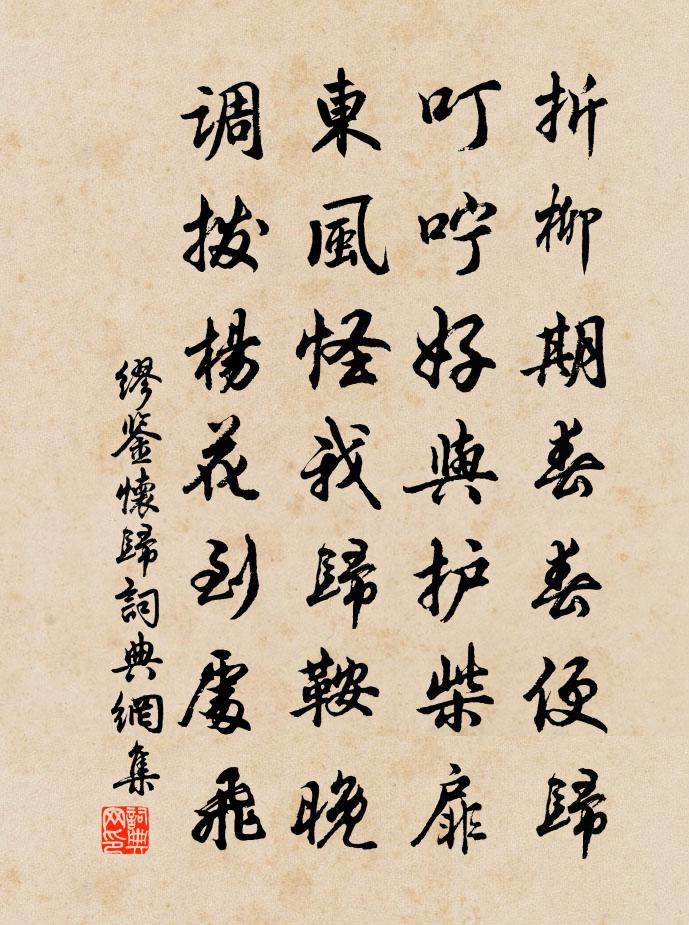 折柳期春春便歸
叮咛好與护柴扉
東風怪我歸鞍晚
调拨楊花到處飛
繆鉴懷歸詞典網集
詞典
网印